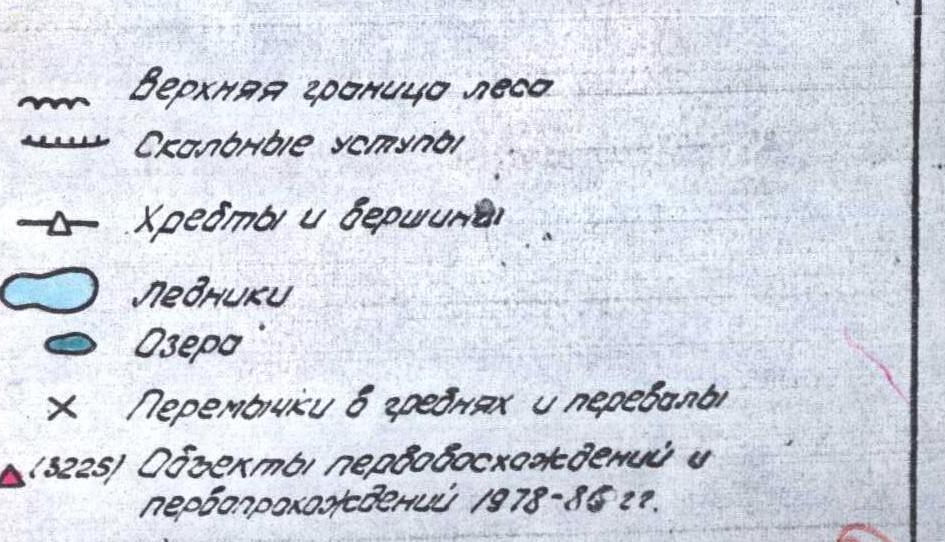 Верхняя граница леса
Скальные уступы
Хребты и вершины
Ледники
Озера
Перемычки в гребнях и перевалы
(3225) Объекты первовосхождений и
первопрохождений 1978-86 гг.